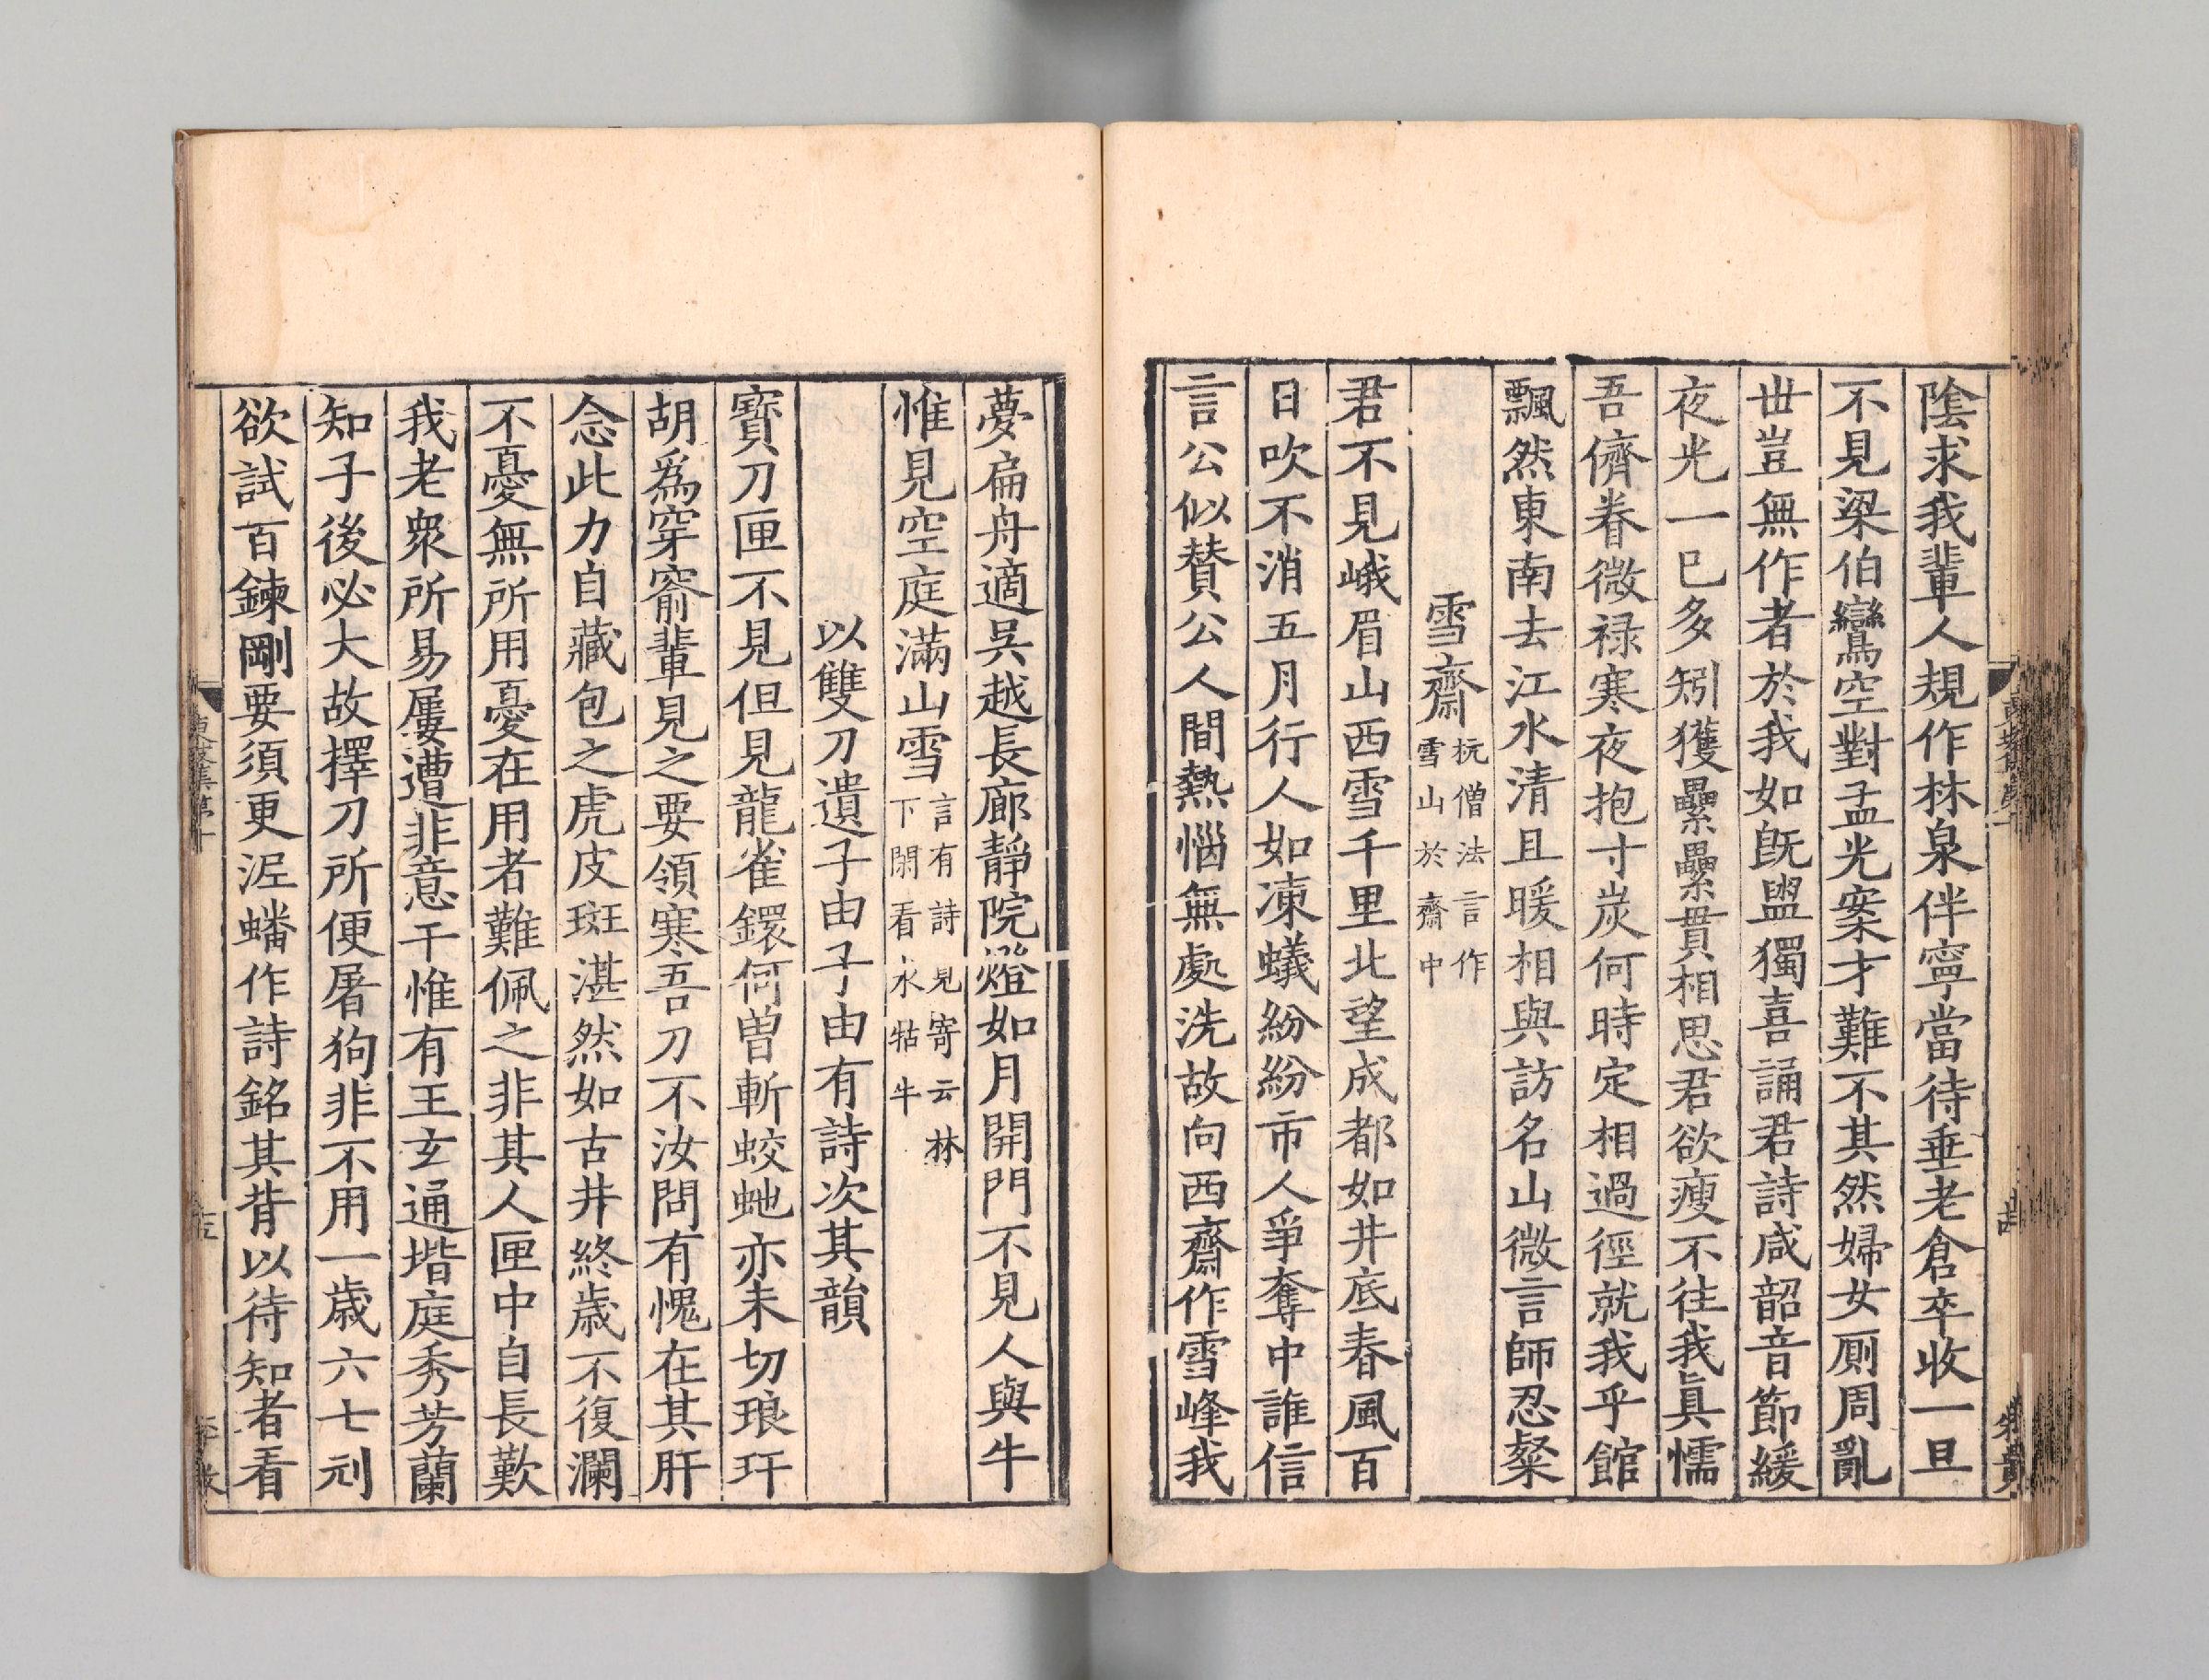 陰求我輩人規作林泉伴寧當待垂老倉卒收一旦
不見梁伯鸞空對孟光案才難不其然婦女厠周亂
世豈無作者於我如旣盥獨喜誦君詩咸韶音節緩
夜光一已多矧獲纍纍貫相思君欲瘦不往我眞懦
吾儕眷微禄寒夜抱寸炭何時定相過徑就我乎館
飄然東南去江水清且暖相與訪名山微言師忍粲
雪齋
杭僧法言作
雪山於齋中
君不見峨眉山西雪千里北望成都如井底春風百
日吹不消五月行人如凍蟻紛紛市人爭奪中誰信
言公似賛公人間熱惱無處洗故向西齋作雪峰我
夢扁舟適吳越長廊靜院燈如月開門不見人與牛
惟見空庭滿山雪
言有詩見寄云林
下閑看水牯牛
以雙刀遺子由子由有詩次其韻
寳刀匣不見但見龍雀鐶何曽斬蛟虵亦未切琅玕
胡爲穿窬輩見之要領寒吾刀不汝問有愧在其肝
念此力自藏包之虎皮斑湛然如古井終歳不復瀾
不憂無所用憂在用者難佩之非其人匣中自長歎
我老衆所易屢遭非意干惟有王玄通堦庭秀芳蘭
知子後必大故擇刀所便屠狗非不用一歳六七刓
欲試百鍊剛要須更泥蟠作詩銘其背以待知者看